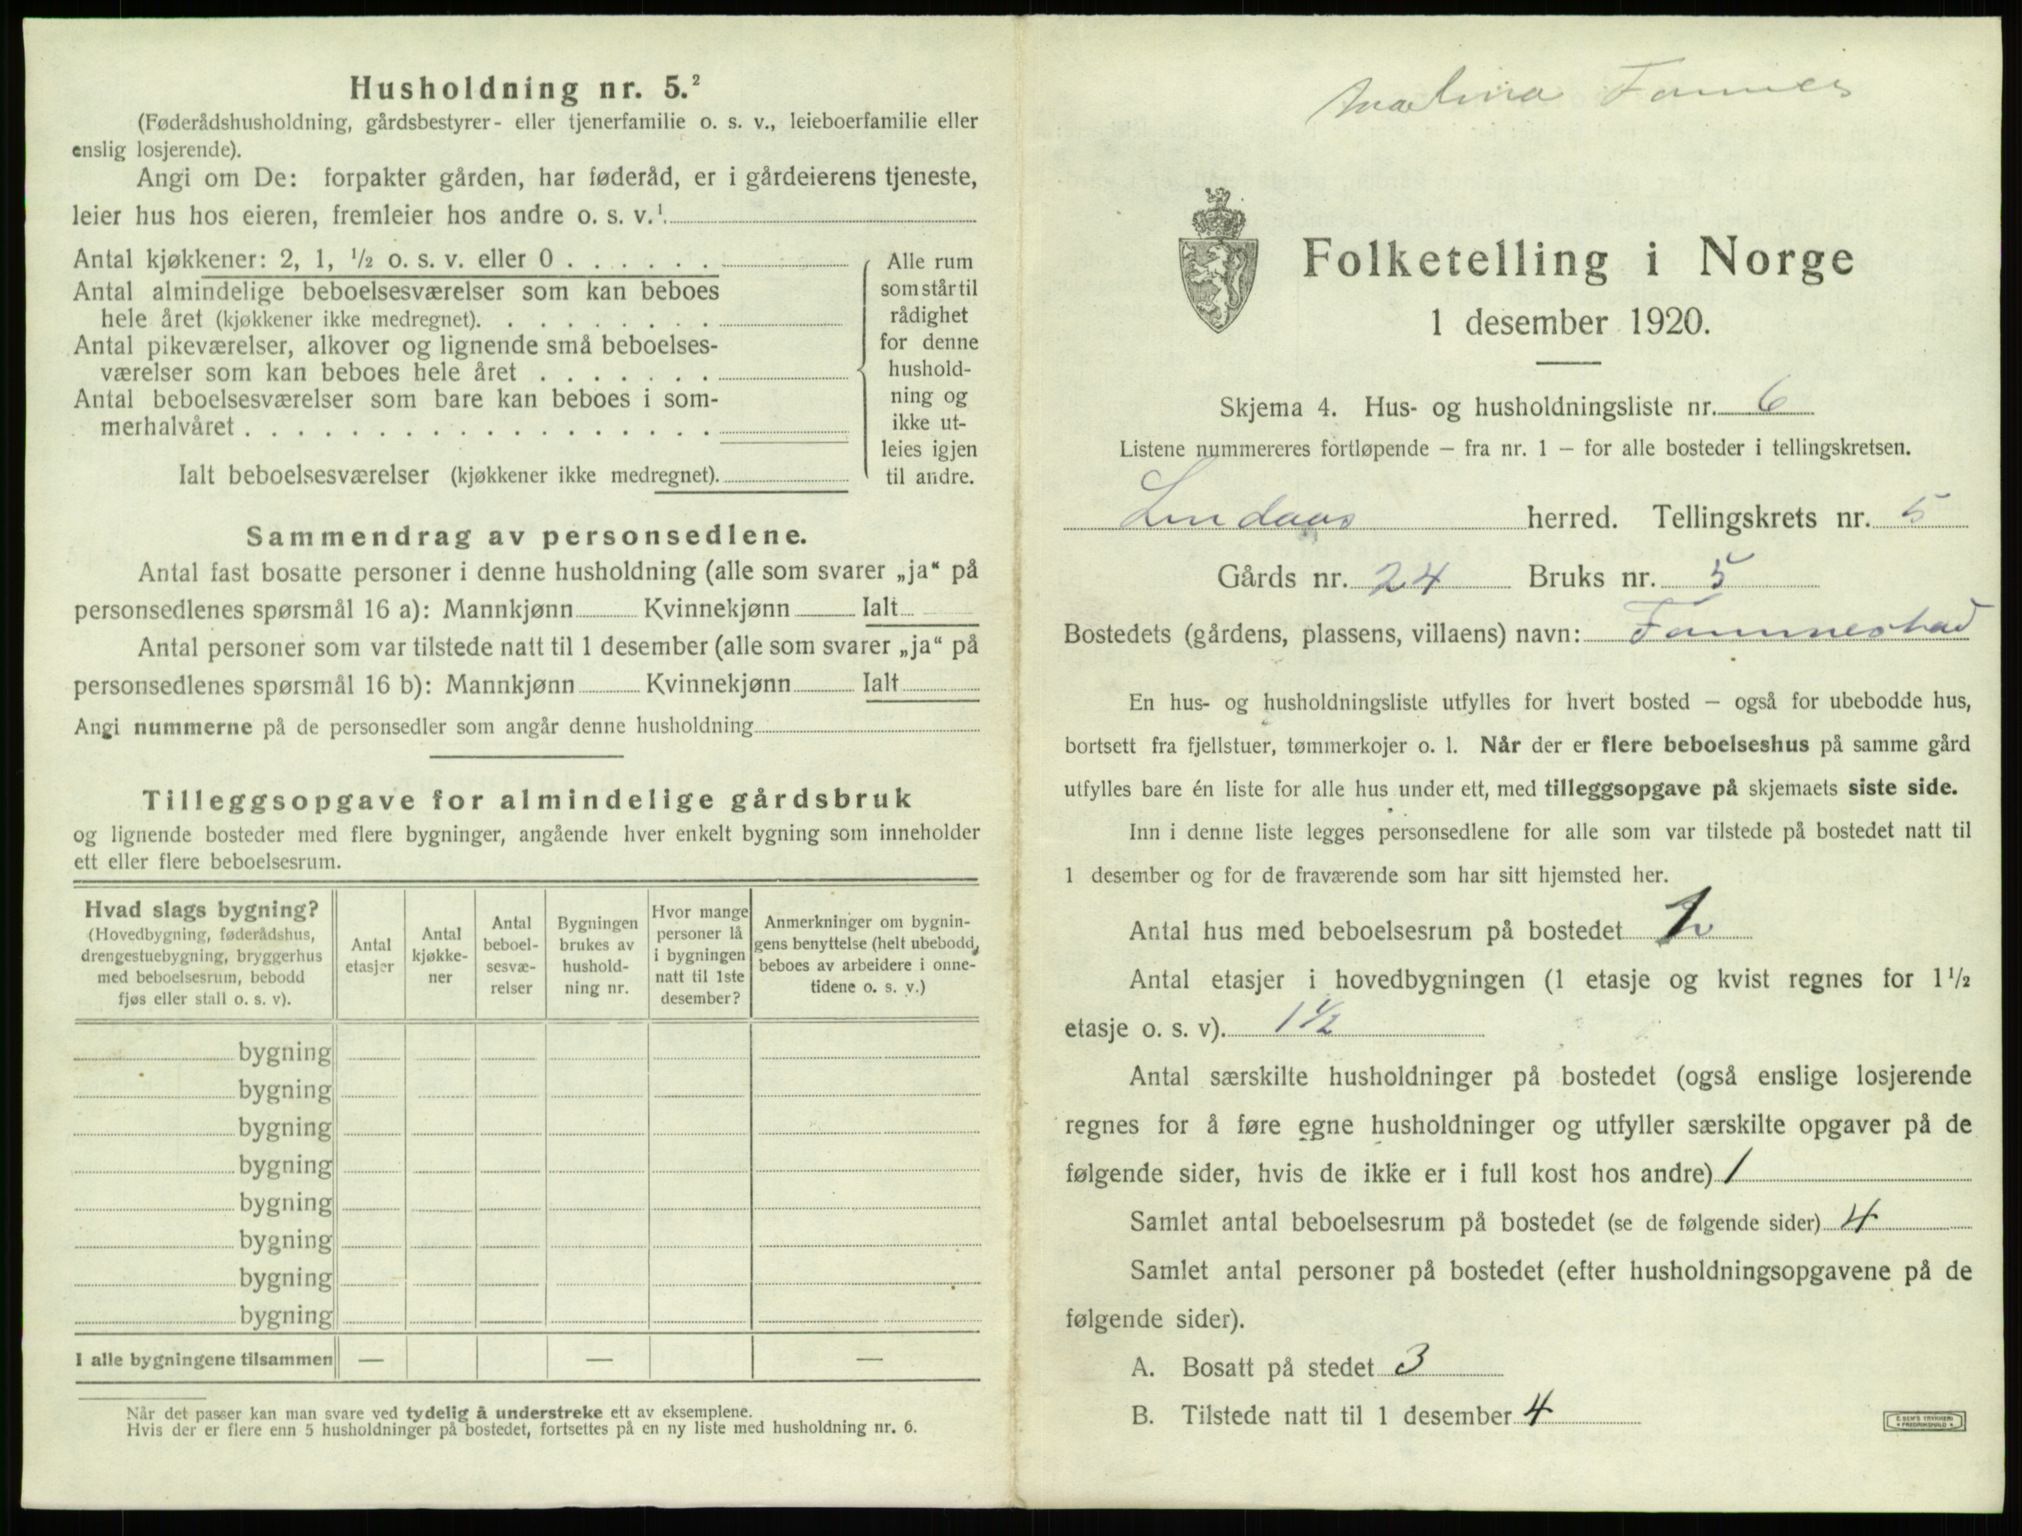 Husholdning nr. 5.²
(Føderådshusholdning, gårdsbestyrer- eller tjenerfamilie o. s. v., leieboerfamilie eller
enslig losjerende).
Angi om De: forpakter gården, har føderåd, er i gårdeierens tjeneste,
leier hus hos eieren, fremleier hos andre o. s. v.¹
Antal kjøkkener: 2, 1, ½ o. s. v. eller 0 . . . . . .
Antal almindelige beboelsesværelser som kan beboes
hele året (kjøkkener ikke medregnet). . . . . . . . .
Antal pikeværelser, alkover og lignende små beboelses-
værelser som kan beboes hele året . . . . . . .
Antal beboelsesværelser som bare kan beboes i som-
merhalvåret . . . . . . . . . . . . . . . . . .
Ialt beboelsesværelser (kjøkkener ikke medregnet).
Alle rum
som står til
rådighet
for denne
hushold-
ning og
ikke ut-
leies igjen
til andre.
Sammendrag av personsedlene.
Antal fast bosatte personer i denne husholdning (alle som svarer „ja“ på
personsedlenes spørsmål 16 a): Mannkjønn Kvinnekjønn Ialt
Antal personer som var tilstede natt til 1 desember (alle som svarer „ja“ på
personsedlenes spørsmål 16 b): Mannkjønn Kvinnekjønn Ialt
Angi nummerne på de personsedler som angår denne husholdning
Tilleggsopgave for almindelige gårdsbruk
og lignende bosteder med flere bygninger, angående hver enkelt bygning som inneholder
ett eller flere beboelsesrum.
Hvad slags bygning?
(Hovedbygning, føderådshus,
drengestuebygning, bryggerhus
med beboelsesrum, bebodd
fjøs eller stall o. s. v).
Antal
etasjer
Antal
kjøkke-
ner
Antal
beboel-
sesvæ-
relser
Bygningen
brukes av
hushold-
ning nr.
Hvor mange
personer lå
i bygningen
natt til 1ste
desember?
Anmerkninger om bygnin-
gens benyttelse (helt ubebodd,
beboes av arbeidere i onne-
tidene o. s. v.)
bygning
bygning
bygning
bygning
bygning
bygning
bygning
bygning
I alle bygningene tilsammen — — —
Når det passer kan man svare ved tydelig å understreke ett av eksemplene.
Hvis der er flere enn 5 husholdninger på bostedet, fortsettes på en ny liste med husholdning nr. 6.
Malina Fammes
Folketelling i Norge
1 desember 1920.
Skjema 4. Hus- og husholdningsliste nr. 6
Listene nummereres fortløpende – fra nr. 1 – for alle bosteder i tellingskretsen.
Lindaas herred. Tellingskrets nr. 5
Gårds nr. 24 Bruks nr. 5
Bostedets (gårdens, plassens, villaens) navn: Fammestad
En hus- og husholdningsliste utfylles for hvert bosted – også for ubebodde hus,
bortsett fra fjellstuer, tømmerkojer o. l. Når der er flere beboelseshus på samme gård
utfylles bare én liste for alle hus under ett, med tilleggsopgave på skjemaets siste side.
Inn i denne liste legges personsedlene for alle som var tilstede på bostedet natt til
1 desember og for de fraværende som har sitt hjemsted her.
Antal hus med beboelsesrum på bostedet 1
Antal etasjer i hovedbygningen (1 etasje og kvist regnes for 1½
etasje o. s. v). 1½
Antal særskilte husholdninger på bostedet (også enslige losjerende
regnes for å føre egne husholdninger og utfyller særskilte opgaver på de
følgende sider, hvis de ikke er i full kost hos andre) 1
Samlet antal beboelsesrum på bostedet (se de følgende sider) 4
Samlet antal personer på bostedet (efter husholdningsopgavene på de
følgende sider).
A. Bosatt på stedet 3
B. Tilstede natt til 1 desember 4